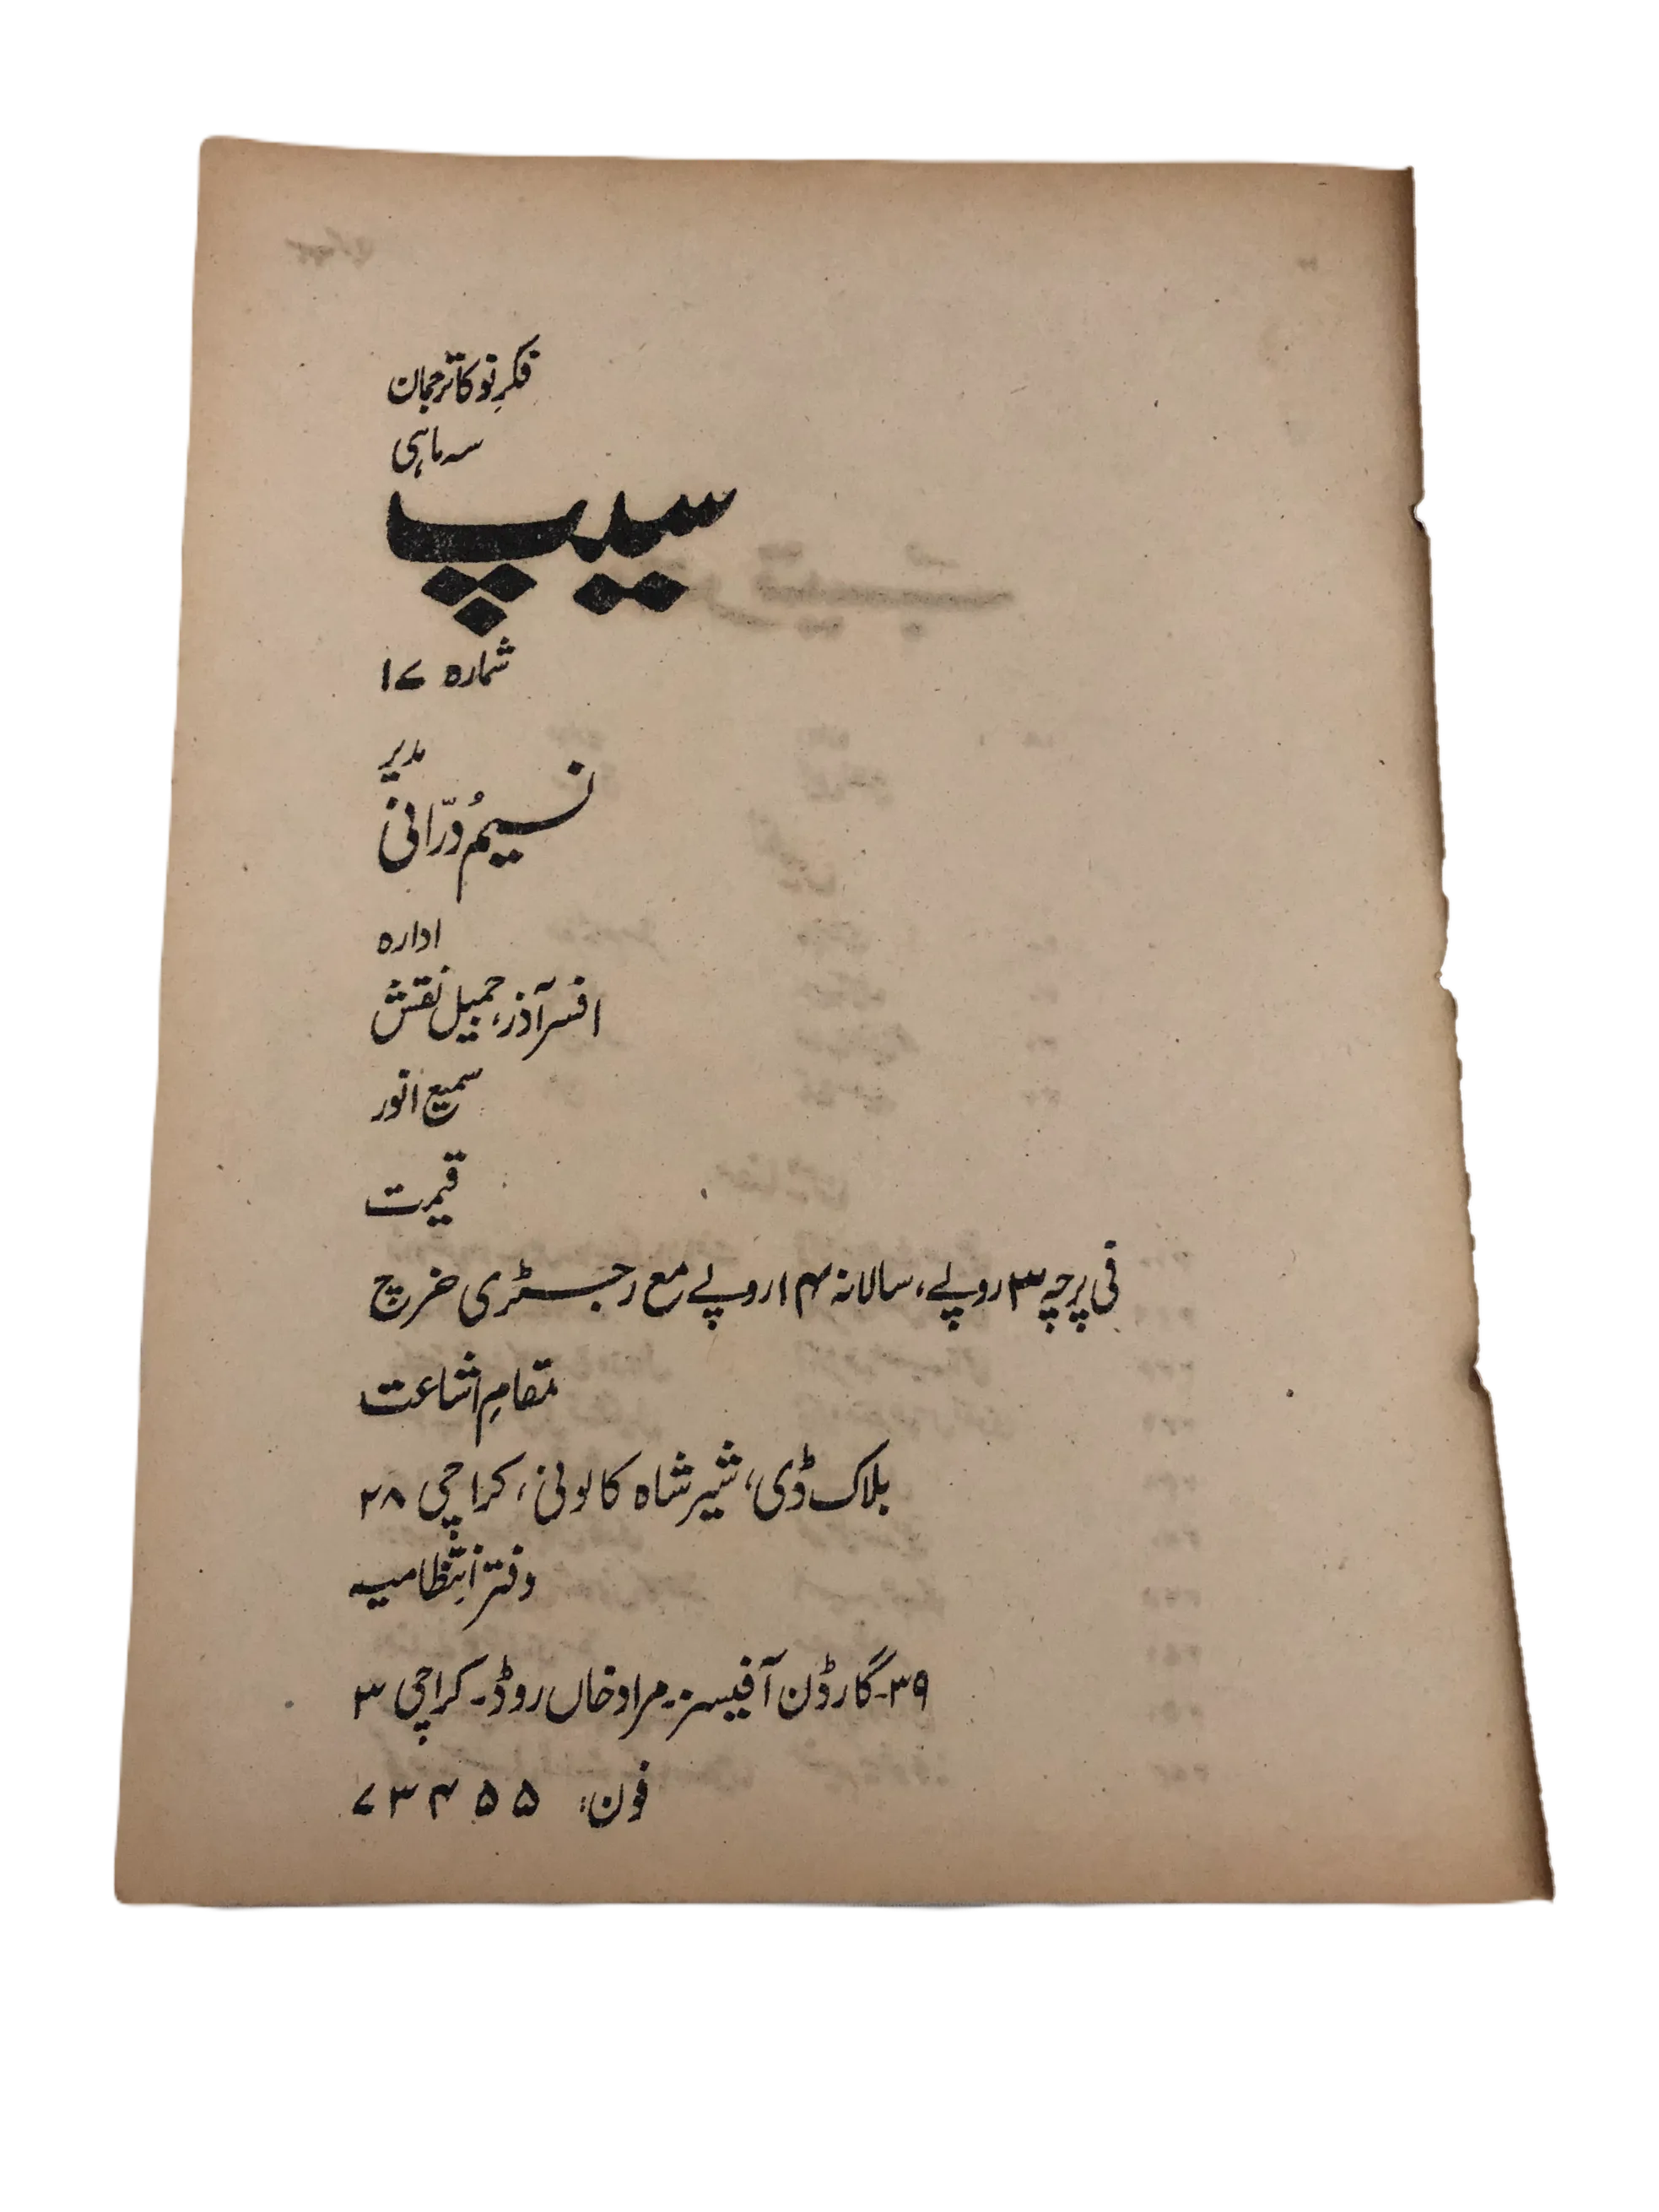 فکرِ نو کا ترجمان
سہ ماہی
سیپ
شمارہ ۱۷
مدیر
نسیم دُرّانی
ادارہ
افسر آذر، جمیل نقش
سمیع انور
قیمت
فی پرچہ ۳ روپے، سالانہ ۱۴ روپے مع رجسٹری خرچ
مقامِ اشاعت
بلاک ڈی، شیر شاہ کالونی، کراچی ۲۸
دفتر انتظامیہ
۳۹-گارڈن آفیسز-مراد خاں روڈ-کراچی ۳
فون: ۷۳۴۵۵